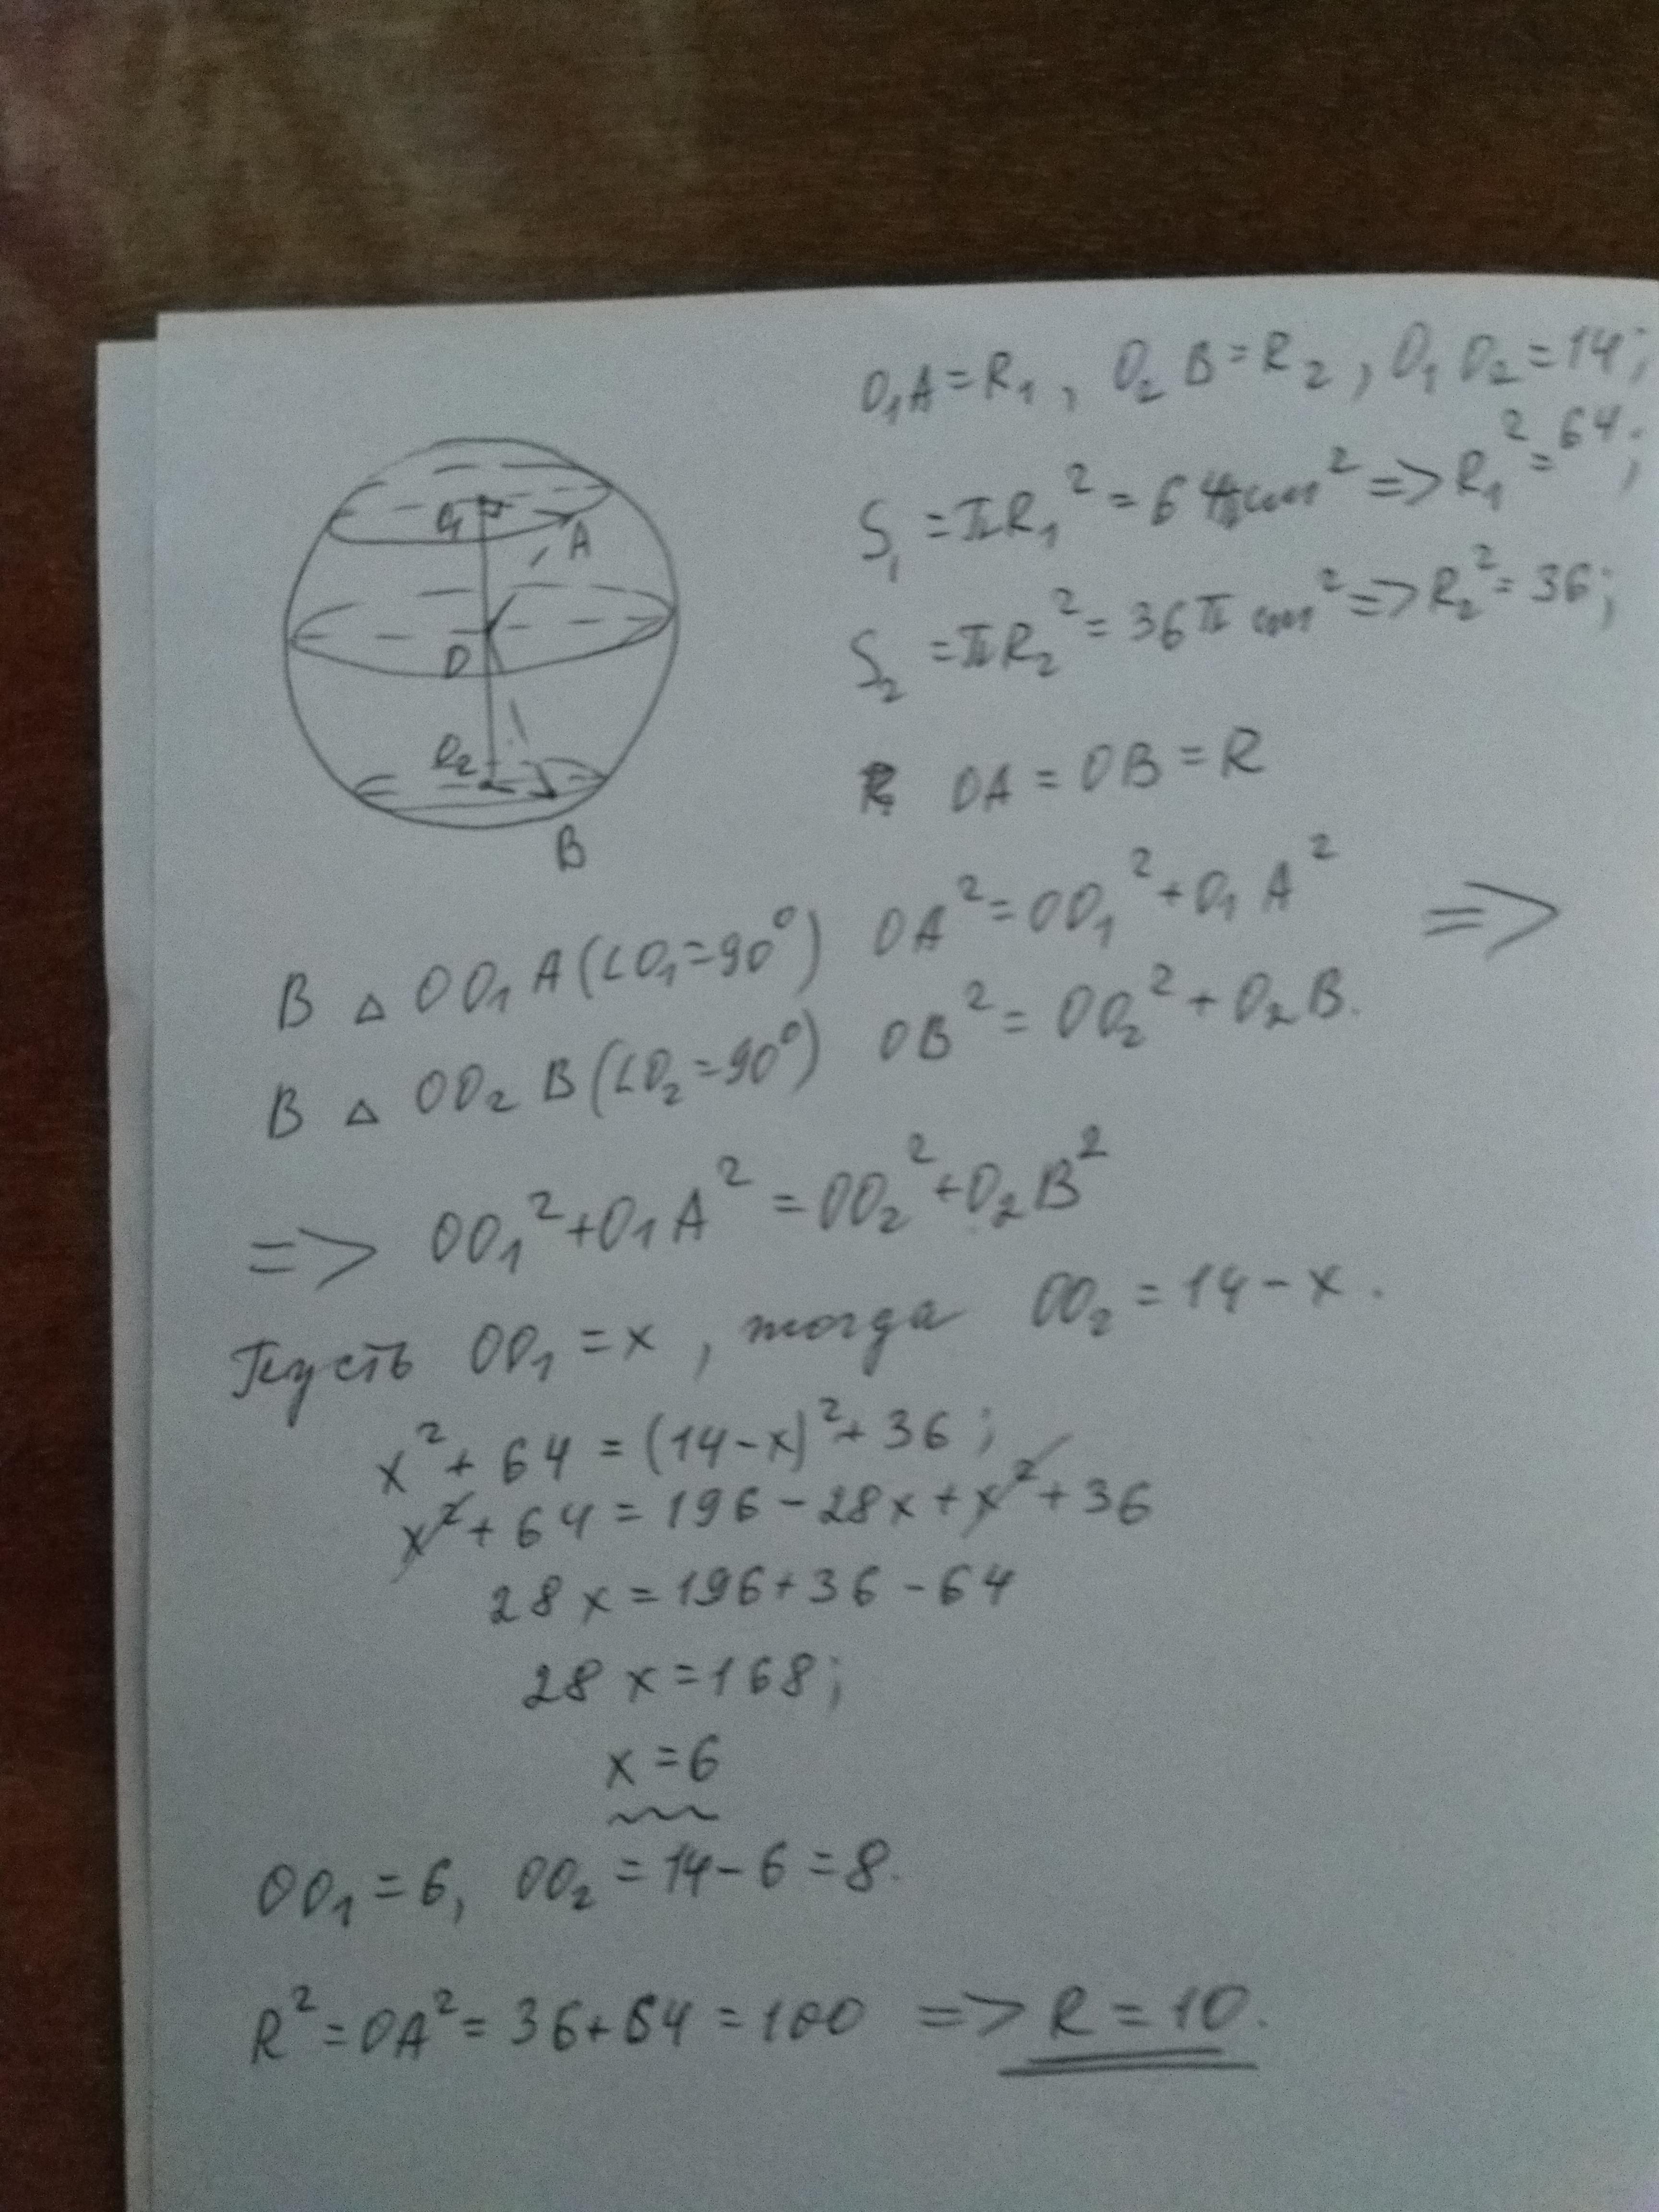 O₁A = R₁, O₂B = R₂, O₁O₂ = 14;
S₁ = πR₁² = 64π см² => R₁² = 64;
S₂ = πR₂² = 36π см² => R₂² = 36;
O₁
A
O
O₂
B
OA = OB = R
В △ OO₁A (∠O₁ = 90°) OA² = OO₁² + O₁A² =>
В △ OO₂B (∠O₂ = 90°) OB² = OO₂² + O₂B.
=> OO₁² + O₁A² = OO₂² + O₂B²
Пусть OO₁ = x, тогда OO₂ = 14 - x.
x² + 64 = (14 - x)² + 36;
x² + 64 = 196 - 28x + x² + 36
28x = 196 + 36 - 64
28x = 168;
x = 6
OO₁ = 6, OO₂ = 14 - 6 = 8.
R² = OA² = 36 + 64 = 100 => R = 10.